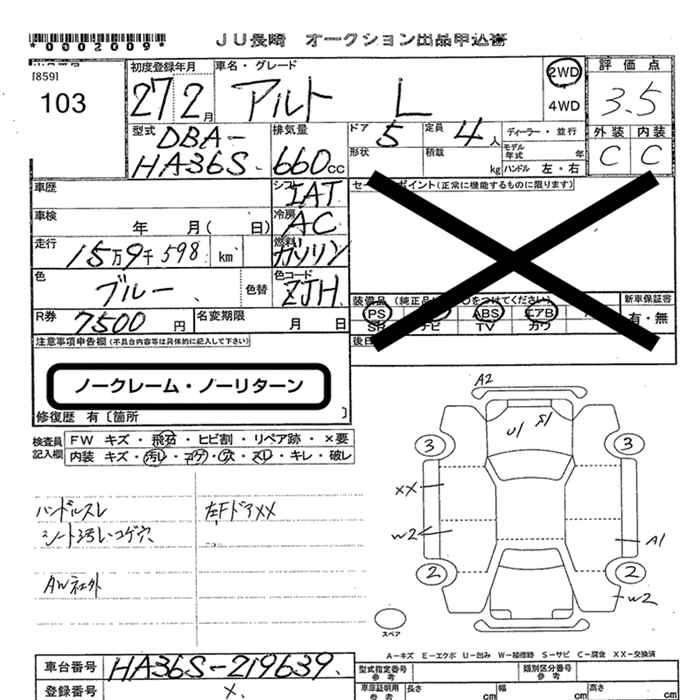 *0002009*
JU長崎 オークション出品申込書
[859]
103
初度登録年月
27 2月
車名・グレード
アルト L
2WD
4WD
評価点
3.5
外装 内装
C C
型式
DBA-
HA36S
排気量
660cc
ドア 5
形状
定員 4人
積載 kg
ディーラー・並行
モデル年式 年
ハンドル 左・右
車歴
シフト IAT
車検 年 月( 日)
冷房 AC
走行 15万9千598 km
燃料 ガソリン
色 ブルー 色替
色コード ZJH
R券 7500円
名変期限 月 日
ポイント(正常に機能するものに限ります)
新車保証書
有・無
PS ABS エアB
TV カワ
注意事項申告欄(不具合内容等は具体的に記入して下さい)
ノークレーム・ノーリターン
修復歴 有〔箇所 〕
検査員記入欄
FW キズ・飛石・ヒビ割・リペア跡・×要
内装 キズ・汚レ・コゲ・穴・スレ・キレ・破レ
ハンドルスレ
左FドアXX
A2
U1 S1
3 3
XX
W2
A1
2 2
W2
スペア
A=キズ E=エクボ U=凹み W=補修跡 S=サビ C=腐食 XX=交換済
車台番号 HA36S-219639
登録番号 X
型式指定番号 参考
類別区分番号 参考
車庫証明用 参考 長さ cm 幅 cm 高さ cm